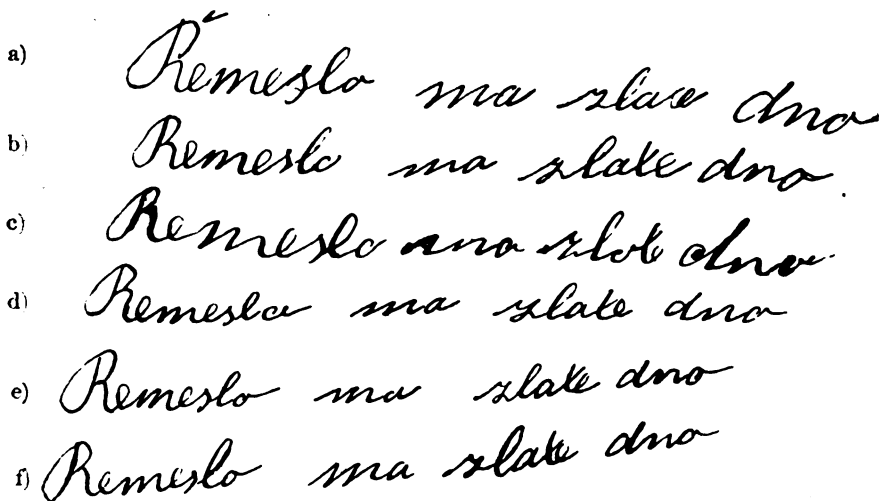 a) Řemeslo ma zlate dno
b) Remeslo ma zlate dno
c) Remeslo ma zlote dno
d) Remeslo ma zlate dno
e) Remeslo ma zlate dno
f) Remeslo ma zlate dno